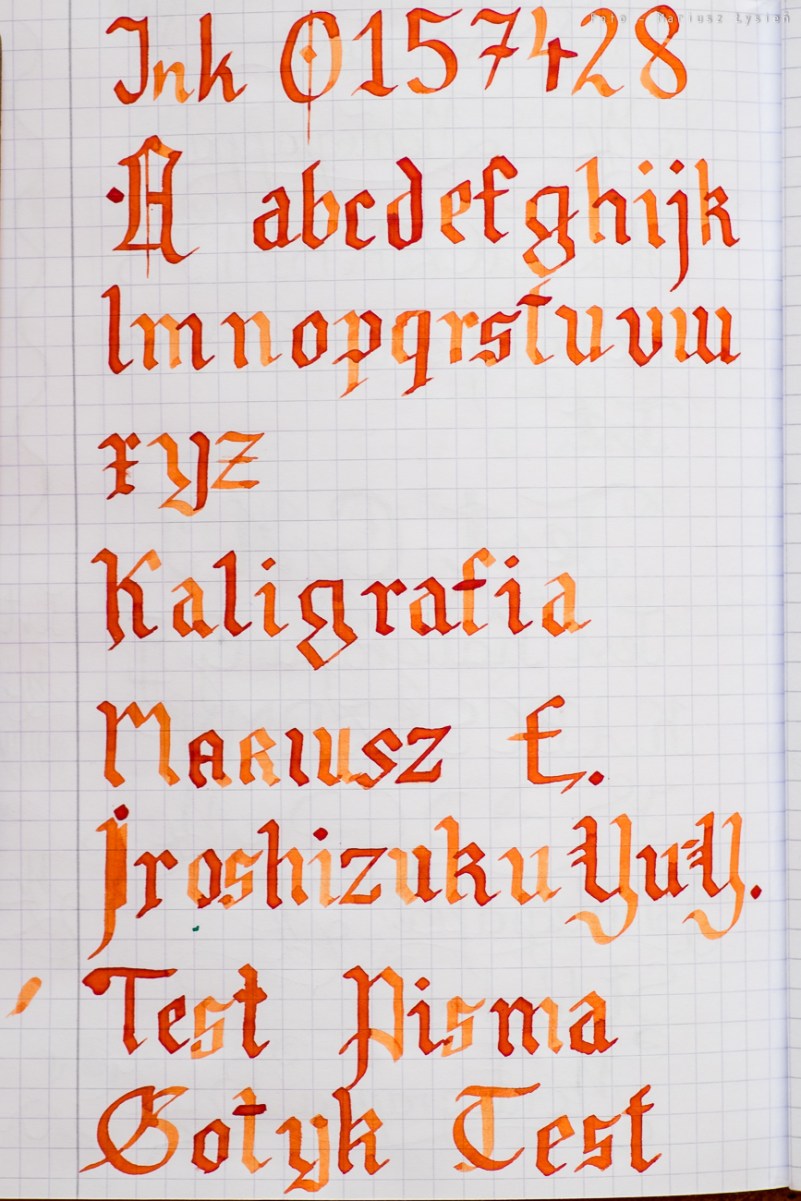 Foto - Mariusz Łysień
Ink 0157428
A abcdefghijk
lmnopqrstuvw
xyz
Kaligrafia
Mariusz Ł.
Iroshizuku Yu-Y.
Test Pisma
Gotyk Test